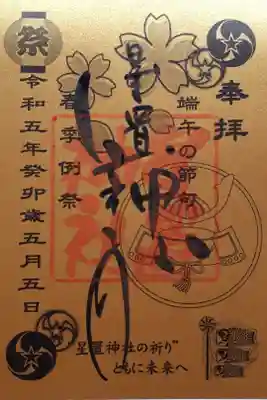 奉拝
端午の節句
星置
春季例祭
祭
令和五年癸卯歳五月五日
星置神社の祈り
ともに未来へ